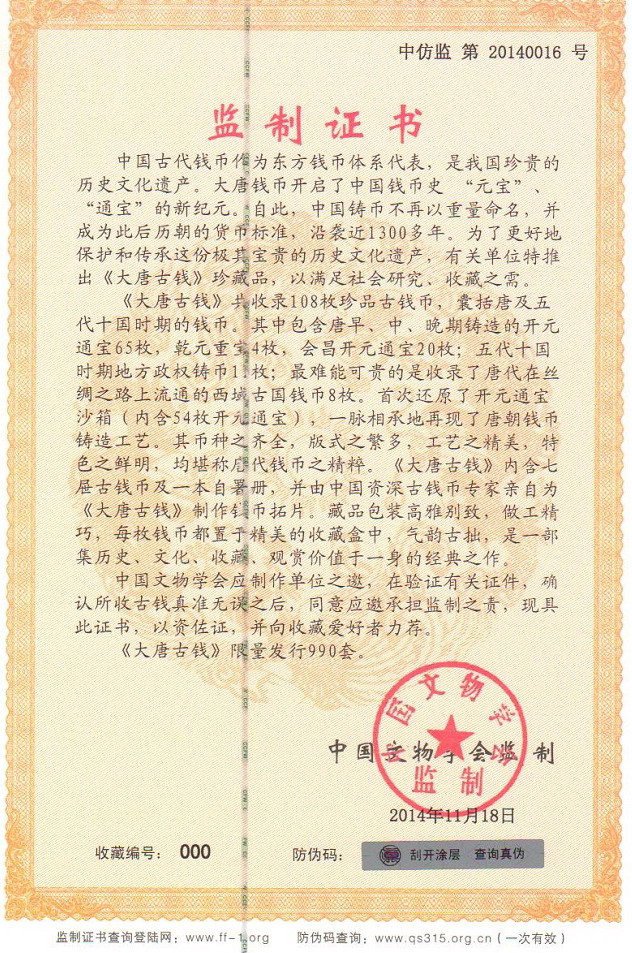 中仿监 第 20140016 号
监制证书
中国古代钱币作为东方钱币体系代表，是我国珍贵的
历史文化遗产。大唐钱币开启了中国钱币史 “元宝”、
“通宝”的新纪元。自此，中国铸币不再以重量命名，并
成为此后历朝的货币标准，沿袭近1300多年。为了更好地
保护和传承这份极其宝贵的历史文化遗产，有关单位特推
出《大唐古钱》珍藏品，以满足社会研究、收藏之需。
《大唐古钱》共收录108枚珍品古钱币，囊括唐及五
代十国时期的钱币。其中包含唐早、中、晚期铸造的开元
通宝65枚，乾元重宝4枚，会昌开元通宝20枚；五代十国
时期地方政权铸币11枚；最难能可贵的是收录了唐代在丝
绸之路上流通的西域古国钱币8枚。首次还原了开元通宝
沙箱（内含54枚开元通宝），一脉相承地再现了唐朝钱币
铸造工艺。其币种之齐全，版式之繁多，工艺之精美，特
色之鲜明，均堪称唐代钱币之精粹。《大唐古钱》内含七
屉古钱币及一本自署册，并由中国资深古钱币专家亲自为
《大唐古钱》制作钱币拓片。藏品包装高雅别致，做工精
巧，每枚钱币都置于精美的收藏盒中，气韵古拙，是一部
集历史、文化、收藏、观赏价值于一身的经典之作。
中国文物学会应制作单位之邀，在验证有关证件，确
认所收古钱真准无误之后，同意应邀承担监制之责，现具
此证书，以资佐证，并向收藏爱好者力荐。
《大唐古钱》限量发行990套。
中国文物学会
监制
中国文物学会监制
2014年11月18日
收藏编号： 000 防伪码： 刮开涂层 查询真伪
监制证书查询登陆网：www.ff-1.org 防伪码查询：www.qs315.org.cn（一次有效）